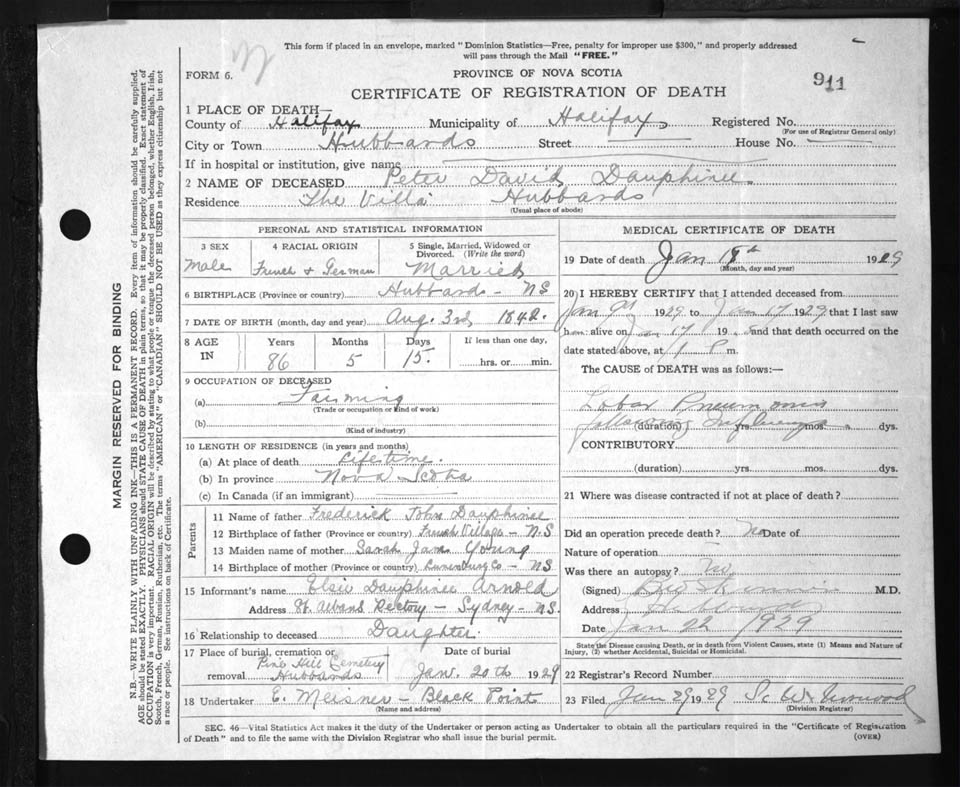 This form if placed in an envelope, marked "Dominion Statistics—Free, penalty for improper use $300," and properly addressed
will pass through the Mail "FREE."
FORM 6.
PROVINCE OF NOVA SCOTIA
911
CERTIFICATE OF REGISTRATION OF DEATH
1 PLACE OF DEATH—
County of Halifax Municipality of Halifax Registered No.
(For use of Registrar General only)
City or Town Hubbards Street House No.
If in hospital or institution, give name
2 NAME OF DECEASED Peter David Dauphinee
Residence The Villa Hubbards
(Usual place of abode)
PERSONAL AND STATISTICAL INFORMATION
3 SEX 4 RACIAL ORIGIN 5 Single, Married, Widowed or Divorced. (Write the word)
Male French & German Married
6 BIRTHPLACE (Province or country) Hubbards - NS
7 DATE OF BIRTH (month, day and year) Aug. 3rd 1842.
8 AGE IN Years Months Days If less than one day,
86 5 15. hrs. or min.
9 OCCUPATION OF DECEASED
(a) Farming
(Trade or occupation or kind of work)
(b)
(Kind of industry)
10 LENGTH OF RESIDENCE (in years and months)
(a) At place of death Lifetime.
(b) In province Nova Scotia
(c) In Canada (if an immigrant)
Parents
11 Name of father Frederick John Dauphinee
12 Birthplace of father (Province or country) French Village - N.S
13 Maiden name of mother Sarah Jane Young
14 Birthplace of mother (Province or country) Lunenburg Co - NS
15 Informant's name Elsie Dauphinee Arnold
Address St. Albans Rectory - Sydney - NS
16 Relationship to deceased Daughter.
17 Place of burial, cremation or removal Pine Hill Cemetery Hubbards
Date of burial Jan. 20th 1929
18 Undertaker E. Meisner - Black Point
(Name and address)
MEDICAL CERTIFICATE OF DEATH
19 Date of death Jan 18th 1929
(Month, day and year)
20 I HEREBY CERTIFY that I attended deceased from
Jan 9 1929 to Jan 17 1929 that I last saw
h alive on 17 19 and that death occurred on
date stated above, at 1 P m.
The CAUSE of DEATH was as follows:—
Lobar Pneumonia
Following Influenza
(duration) yrs. mos. dys.
CONTRIBUTORY
(duration) yrs. mos. dys.
21 Where was disease contracted if not at place of death?
Did an operation precede death? No Date of
Nature of operation
Was there an autopsy? No.
(Signed) M.D.
Address Hubbards
Date Jan 22 1929
State the Disease causing Death, or in death from Violent Causes, state (1) Means and Nature of
Injury, (2) whether Accidental, Suicidal or Homicidal.
22 Registrar's Record Number
23 Filed Jan 29 1929
(Division Registrar)
SEC. 46—Vital Statistics Act makes it the duty of the Undertaker or person acting as Undertaker to obtain all the particulars required in the "Certificate of Registration
of Death" and to file the same with the Division Registrar who shall issue the burial permit.
(OVER)
MARGIN RESERVED FOR BINDING
N.B.—WRITE PLAINLY WITH UNFADING INK—THIS IS A PERMANENT RECORD. Every item of information should be carefully supplied.
AGE should be stated EXACTLY. PHYSICIANS should STATE CAUSE OF DEATH in plain terms, so that it may be properly classified. Exact statement of
OCCUPATION is very important. RACIAL ORIGIN will be described by stating to what people or tongue the deceased person belonged, whether English, Irish,
Scotch, French, German, Russian, Ruthenian, etc. The terms "AMERICAN" or "CANADIAN" SHOULD NOT BE USED as they express citizenship but not
a race or people. See instructions on back of Certificate.